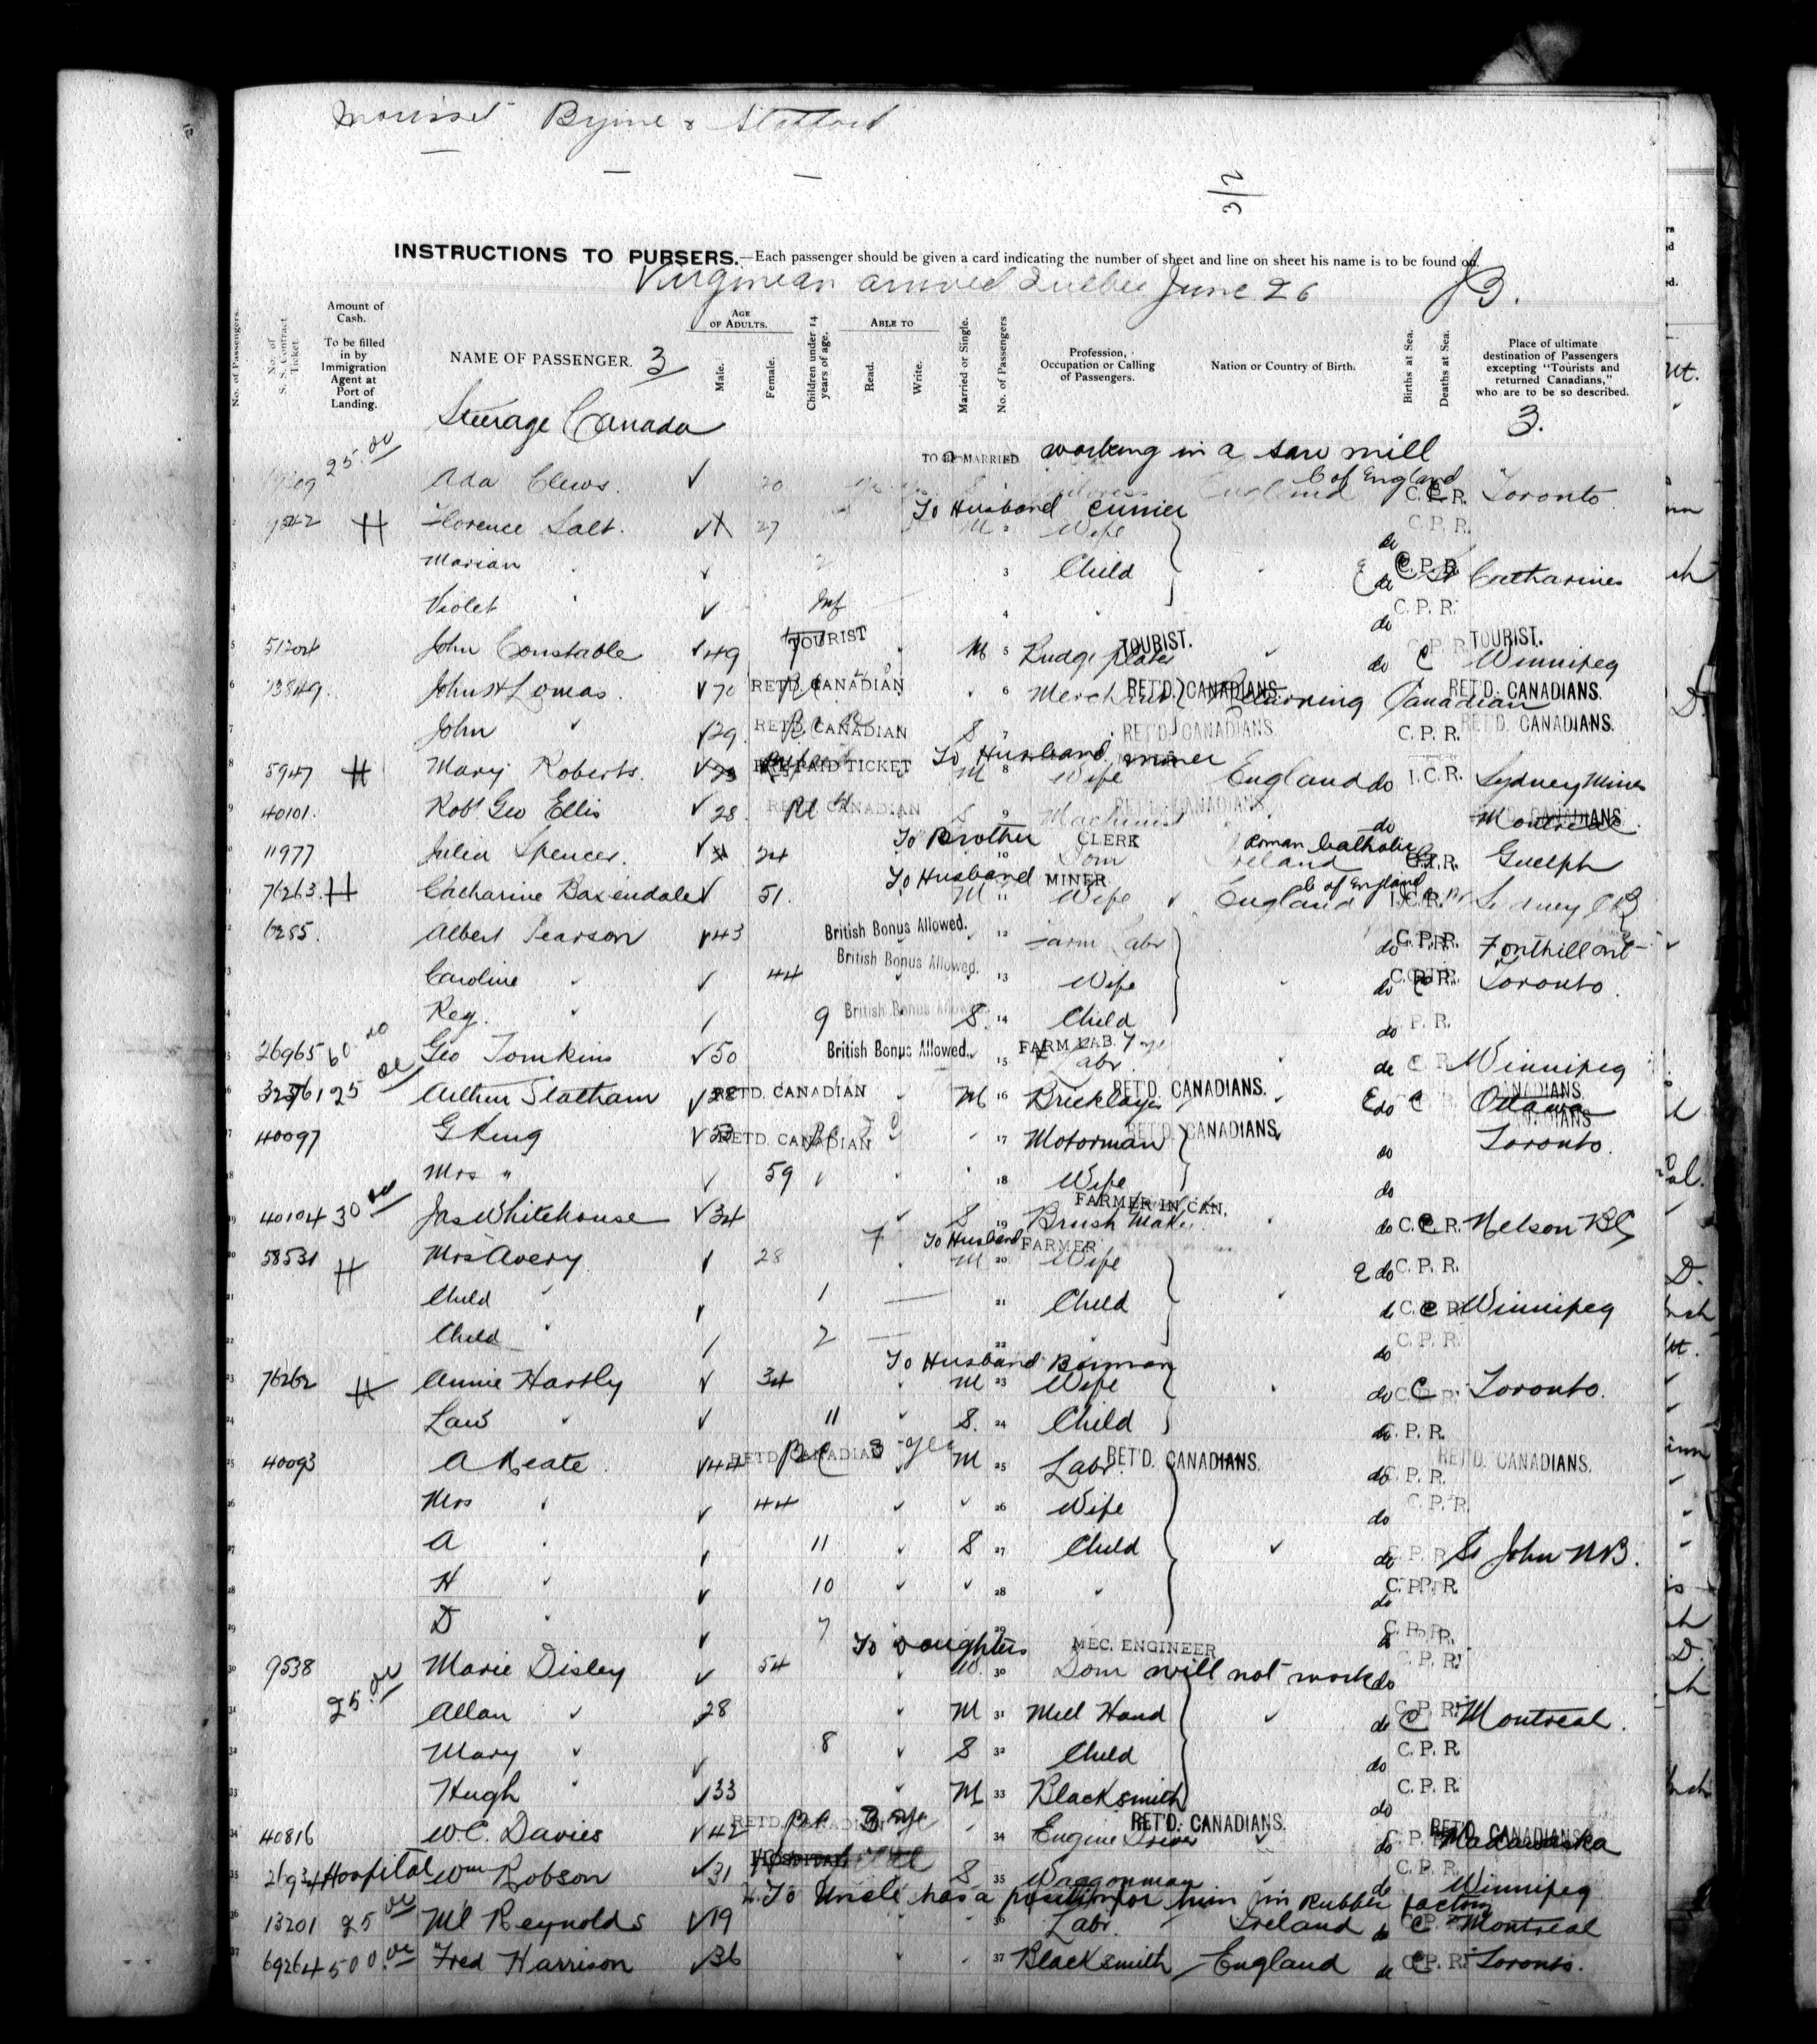 Byrne & Stafford
3/2
INSTRUCTIONS TO PURSERS.—Each passenger should be given a card indicating the number of sheet and line on sheet his name is to be found on.
Virginian arrived Quebec June 26
No. of Passengers. No. of S. S. Contract Ticket. Amount of Cash. To be filled in by Immigration Agent at Port of Landing. NAME OF PASSENGER. 3 AGE OF ADULTS. Male. Female. Children under 14 years of age. ABLE TO Read. Write. Married or Single. No. of Passengers Profession, Occupation or Calling of Passengers. Nation or Country of Birth. Births at Sea. Deaths at Sea. Place of ultimate destination of Passengers excepting "Tourists and returned Canadians," who are to be so described.
Steerage Canada 3.
TO BE MARRIED working in a saw mill
1 25.00 Ada Clews. 20 England C of England C.P.R. Toronto
To Husband
2 H Florence Salt. 27 M 2 Wife do C.P.R.
3 Marian " 2 3 Child do C.P.R. St Catharines
4 Violet " Inf 4 " do C.P.R.
5 51204 John Constable 49 TOURIST M 5 TOURIST. do C TOURIST. Winnipeg
6 73849. John H Lomas. 70 RET'D. CANADIAN 6 Merchant RET'D. CANADIANS. Returning Canadian RET'D. CANADIANS.
7 John " 29 RET'D. CANADIAN S 7 RET'D. CANADIANS. C.P.R. RET'D. CANADIANS.
To Husband miner
8 5947 H Mary Roberts. PREPAID TICKET M 8 Wife England do I.C.R. Sydney Mines
9 40101. Robt Geo Ellis 28 RET'D CANADIAN S 9 Machinist RET'D. CANADIANS. do Montreal
To Brother CLERK Roman Catholic
10 11977 Julia Spencer. 24 10 Dom Ireland C.P.R. Guelph
To Husband MINER C of England
11 76263. H Catharine Baxendale 51. M 11 Wife England I.C.R. Sydney CB
12 6285. Albert Pearson 43 British Bonus Allowed. 12 Farm Labr do C.P.R. Fonthill Ont
13 Caroline " 44 British Bonus Allowed. 13 Wife do C.P.R. Toronto
14 Reg. " 9 British Bonus Allowed S. 14 Child do C.P.R.
15 26965 60.00 Geo Tomkins 50 British Bonus Allowed. 15 FARM LAB. Labr do C Winnipeg
16 25.00 Arthur Statham 38 RET'D. CANADIAN M 16 Bricklayer RET'D. CANADIANS. do C Ottawa
17 40097 G King RET'D. CANADIAN 17 Motorman RET'D. CANADIANS. do Toronto.
18 Mrs " 59 18 Wife do
19 40104 30.00 Jas Whitehouse 34 S 19 Brush Maker FARMER IN CAN. do C.P.R. Nelson BC
To Husband FARMER
20 58531 H Mrs Avery 28 M 20 Wife do C.P.R.
21 Child " 1 21 Child C.P.R. Winnipeg
22 Child " 2 22 " do C.P.R.
To Husband
23 76262 H Annie Hartly 34 M 23 Wife do C.P.R. Toronto.
24 " 11 S. 24 Child do C.P.R.
25 40093 A Keate. 44 RET'D CANADIAN M 25 Labr. RET'D. CANADIANS. do C.P.R. RET'D. CANADIANS.
26 Mrs " 44 26 Wife do C.P.R.
27 A " 11 S 27 Child do C.P.R. St John NB.
28 H " 10 28 " do C.P.R.
29 D " 7 29 C.P.R.
To Daughters MEC. ENGINEER
30 9538 Marie Disley 54 W. 30 Dom will not work do C.P.R.
31 25.00 Allan " 28 M 31 Mill Hand do C Montreal.
32 Mary " 8 S 32 Child do C.P.R
33 Hugh " 33 M 33 Blacksmith do C.P.R
34 40816 W.C. Davies 42 RET'D. CANADIAN 34 Engine Driver RET'D. CANADIANS. do C.P. RET'D. CANADIANS Madawaska
35 Hospital Wm Robson 31 HOSPITAL S 35 Waggonman do C.P.R. Winnipeg
To Uncle has a position for him in Rubber factory
36 13201 25.00 Ml Reynolds 19 36 Labr Ireland do C Montreal
37 69264 500.00 Fred Harrison 36 37 Blacksmith England do C.P.R. Toronto.